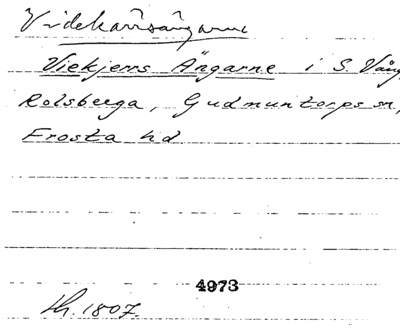 Videkärrsängarne
Viekjerrs Ängarne i S. Vång
Rolsberga, Gudmuntorps sn,
Frosta hd
4973
lh. 1807.